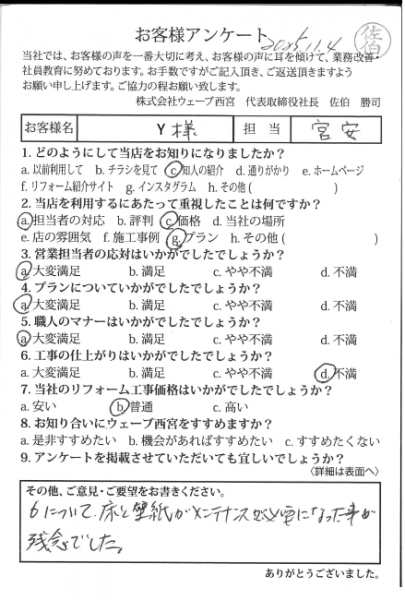 お客様アンケート 2025.11.4 佐伯
当社では、お客様の声を一番大切に考え、お客様の声に耳を傾けて、業務改善・
社員教育に努めております。お手数ですがご記入頂き、ご返送頂きますよう
お願い申し上げます。ご協力の程お願い致します。
株式会社ウェーブ西宮 代表取締役社長 佐伯 勝司
お客様名 Y様 担当 宮安
1. どのようにして当店をお知りになりましたか？
a. 以前利用して b. チラシを見て c. 知人の紹介 d. 通りがかり e. ホームページ
f. リフォーム紹介サイト g. インスタグラム h. その他 ( )
2. 当店を利用するにあたって重視したことは何ですか？
a. 担当者の対応 b. 評判 c. 価格 d. 当社の場所
e. 店の雰囲気 f. 施工事例 g. プラン h. その他 ( )
3. 営業担当者の応対はいかがでしたでしょうか？
a. 大変満足 b. 満足 c. やや不満 d. 不満
4. プランについていかがでしたでしょうか？
a. 大変満足 b. 満足 c. やや不満 d. 不満
5. 職人のマナーはいかがでしたでしょうか？
a. 大変満足 b. 満足 c. やや不満 d. 不満
6. 工事の仕上がりはいかがでしたでしょうか？
a. 大変満足 b. 満足 c. やや不満 d. 不満
7. 当社のリフォーム工事価格はいかがでしたでしょうか？
a. 安い b. 普通 c. 高い
8. お知り合いにウェーブ西宮をすすめますか？
a. 是非すすめたい b. 機会があればすすめたい c. すすめたくない
9. アンケートを掲載させていただいても宜しいでしょうか？
〈詳細は表面へ〉
その他、ご意見・ご要望をお書きください。
6について、床と壁紙がメンテナンス必要になった事が
残念でした。
ありがとうございました。